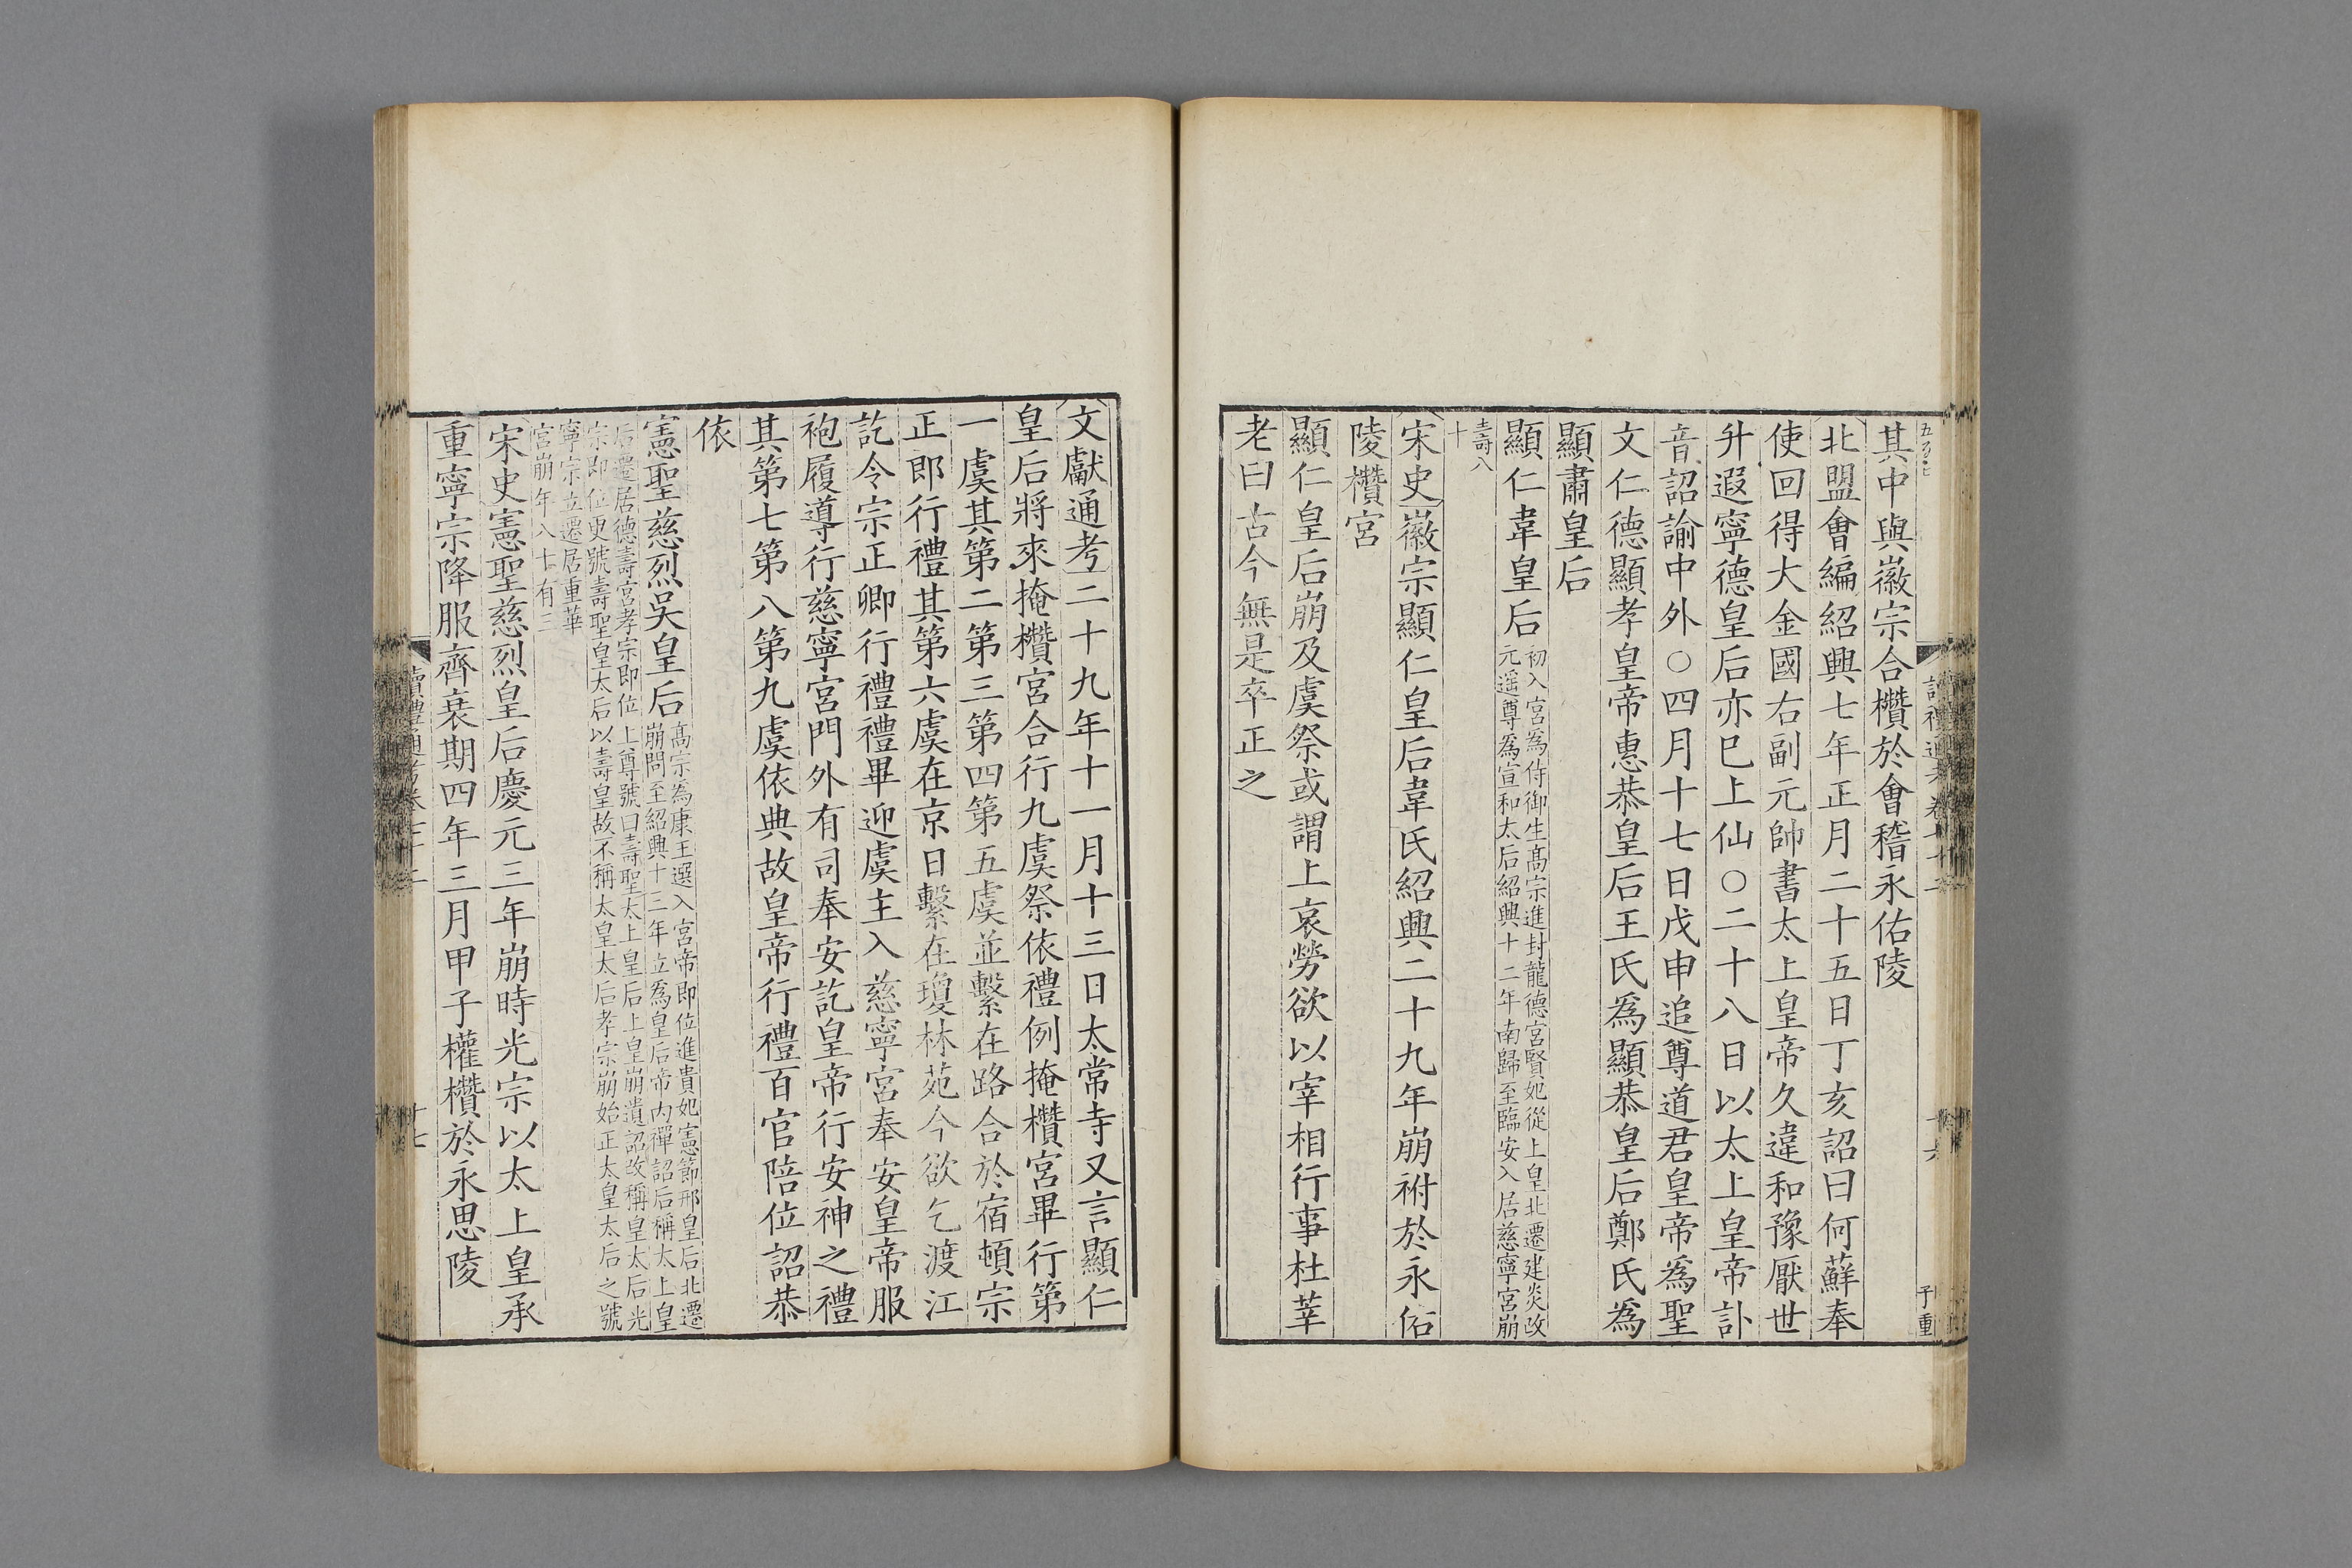 其中與徽宗合欑於會稽永佑陵
北盟會編紹興七年正月二十五日丁亥詔曰何蘚奉
使回得大金國右副元帥書太上皇帝久違和豫厭世
升遐寧德皇后亦已上仙○二十八日以太上皇帝訃
音詔諭中外○四月十七日戊申追尊道君皇帝爲聖
文仁德顯孝皇帝惠恭皇后王氏爲顯恭皇后鄭氏爲
顯肅皇后
顯仁韋皇后初入宮爲侍御生高宗進封龍德宮賢妃從上皇北遷建炎改
元遥尊爲宣和太后紹興十二年南歸至臨安入居慈寧宮崩
壽八
十
宋史徽宗顯仁皇后韋氏紹興二十九年崩祔於永佑
陵欑宮
顯仁皇后崩及虞祭或謂上哀勞欲以宰相行事杜莘
老曰古今無是卒正之
文獻通考二十九年十一月十三日太常寺又言顯仁
皇后將來掩欑宮合行九虞祭依禮例掩欑宮畢行第
一虞其第二第三第四第五虞並繫在路合於宿頓宗
正郎行禮其第六虞在京日繫在瓊林苑今欲乞渡江
訖令宗正卿行禮禮畢迎虞主入慈寧宮奉安皇帝服
袍履導行慈寧宮門外有司奉安訖皇帝行安神之禮
其第七第八第九虞依典故皇帝行禮百官陪位詔恭
依
憲聖慈烈吳皇后高宗為康王選入宮帝即位進貴妃憲節邢皇后北遷
崩問至紹興十三年立爲皇后帝内禪詔后稱太上皇
后遷居德壽宮孝宗即位上尊號曰壽聖太上皇后上皇崩遺詔改稱皇太后光
宗即位更號壽聖皇太后以壽皇故不稱太皇太后孝宗崩始正太皇太后之號
寧宗立遷居重華
宮崩年八十有三
宋史憲聖慈烈皇后慶元三年崩時光宗以太上皇承
重寧宗降服齊衰期四年三月甲子權欑於永思陵